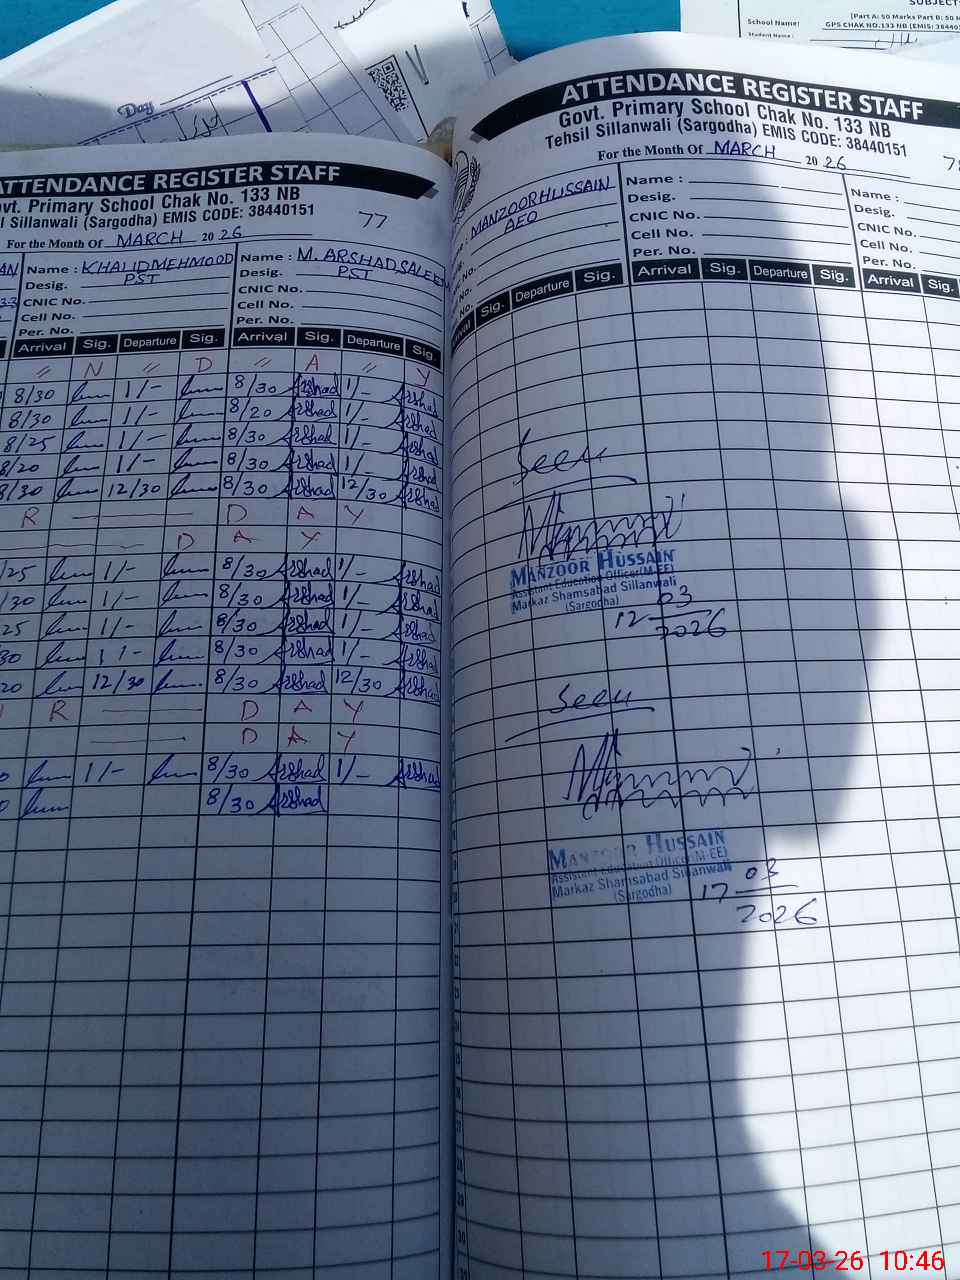 SUBJECT:
[Part A: 50 Marks Part B: 50 M
School Name: GPS CHAK NO.133 NB (EMIS: 384401
Student Name :
Day
ATTENDANCE REGISTER STAFF
Govt. Primary School Chak No. 133 NB
Sillanwali (Sargodha) EMIS CODE: 38440151
77
For the Month Of MARCH 2026
AN
Name : KHALID MEHMOOD
Desig. PST
CNIC No.
Cell No.
Per. No.
Name : M. ARSHAD SALEEM
Desig. PST
CNIC No.
Cell No.
Per. No.
Arrival Sig. Departure Sig. Arrival Sig. Departure Sig.
〃 N 〃 D 〃 A 〃 Y
8/30 1/- 8/30 Arshad 1/- Arshad
8/30 1/- 8/20 Arshad 1/- Arshad
8/25 1/- 8/30 Arshad 1/- Arshad
8/20 1/- 8/30 Arshad 1/- Arshad
8/30 12/30 8/30 Arshad 12/30 Arshad
R D A Y
D A Y
/25 1/- 8/30 Arshad 1/- Arshad
/30 1/- 8/30 Arshad 1/- Arshad
25 1/- 8/30 Arshad 1/- Arshad
30 1/- 8/30 Arshad 1/- Arshad
20 12/30 8/30 Arshad 12/30 Arshad
R D A Y
D A Y
1/- 8/30 Arshad 1/- Arshad
8/30 Arshad
ATTENDANCE REGISTER STAFF
Govt. Primary School Chak No. 133 NB
Tehsil Sillanwali (Sargodha) EMIS CODE: 38440151
For the Month Of MARCH 2026
MANZOOR HUSSAIN
AEO
Name :
Desig.
CNIC No.
Cell No.
Per. No.
Name :
Desig.
CNIC No.
Cell No.
Per. No.
Sig. Departure Sig. Arrival Sig. Departure Sig. Arrival Sig.
Seen
MANZOOR HUSSAIN
Assistant Education Officer(M-EE)
Markaz Shamsabad Sillanwali
(Sargodha)
12 03
2026
Seen
MANZOOR HUSSAIN
Assistant Education Officer(M-EE)
Markaz Shamsabad Sillanwali
(Sargodha)
17 03
2026
17-03-26 10:46